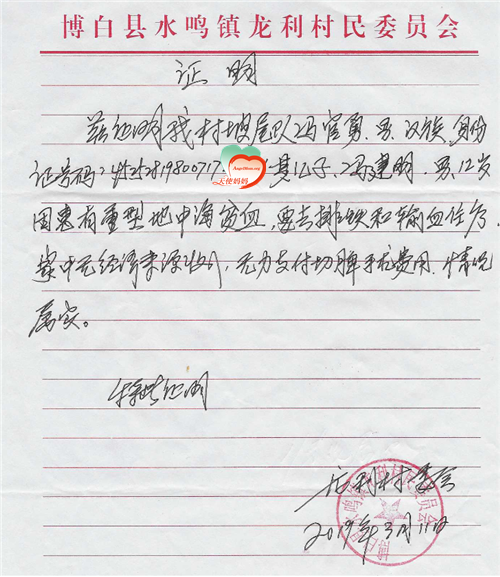 博白县水鸣镇龙利村民委员会
证明
兹证明我村坡尾队冯官勇、男、汉族、身份
证号码:45252819800717 其儿子、冯建明、男、12岁
因患有重型地中海贫血,要去排铁和输血住
家中无经济来源收入,无力支付切脾手术费用、情况
属实。
特此证明
龙利村委会
2019年3月11日
天使妈妈
博白县水鸣镇龙利村民委员会